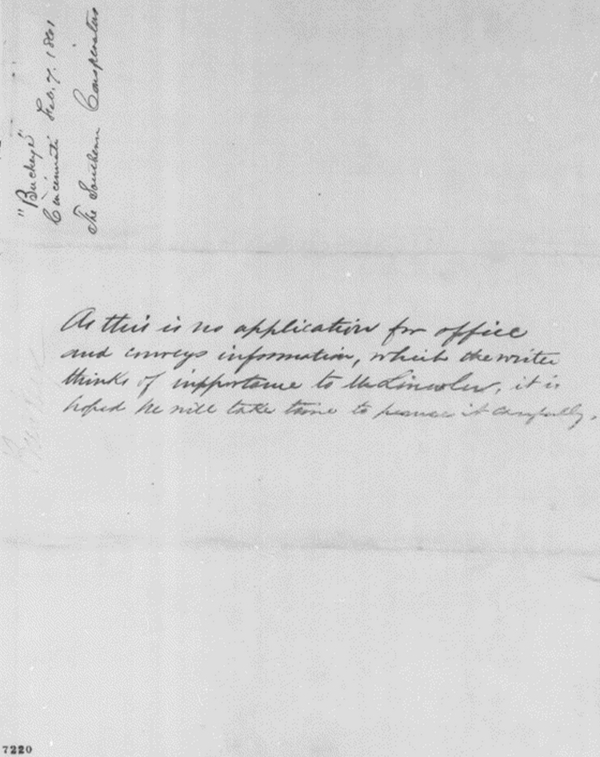 "Buckeye"
Cincinnati Feb. 7. 1861
The Southern Conspirators
As this is no application for office
and conveys information, which the writer
thinks of importance to Mr Lincoln, it is
hoped he will take time to peruse it carefully.
7220